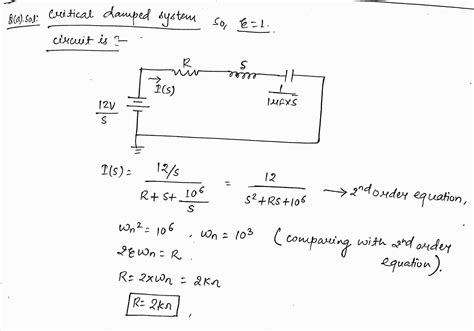 8(a).Sol: Critical damped system So, ξ=1.
circuit is :-
R S
I(s)
1/(1μf×s)
12V/s
I(s) = (12/s)/(R+s+10⁶/s) = 12/(s²+Rs+10⁶) → 2nd order equation,
Wn² = 10⁶ , Wn = 10³ (comparing with 2nd order
equation).
2ξWn = R
R = 2×Wn = 2kΩ
R = 2kΩ ,